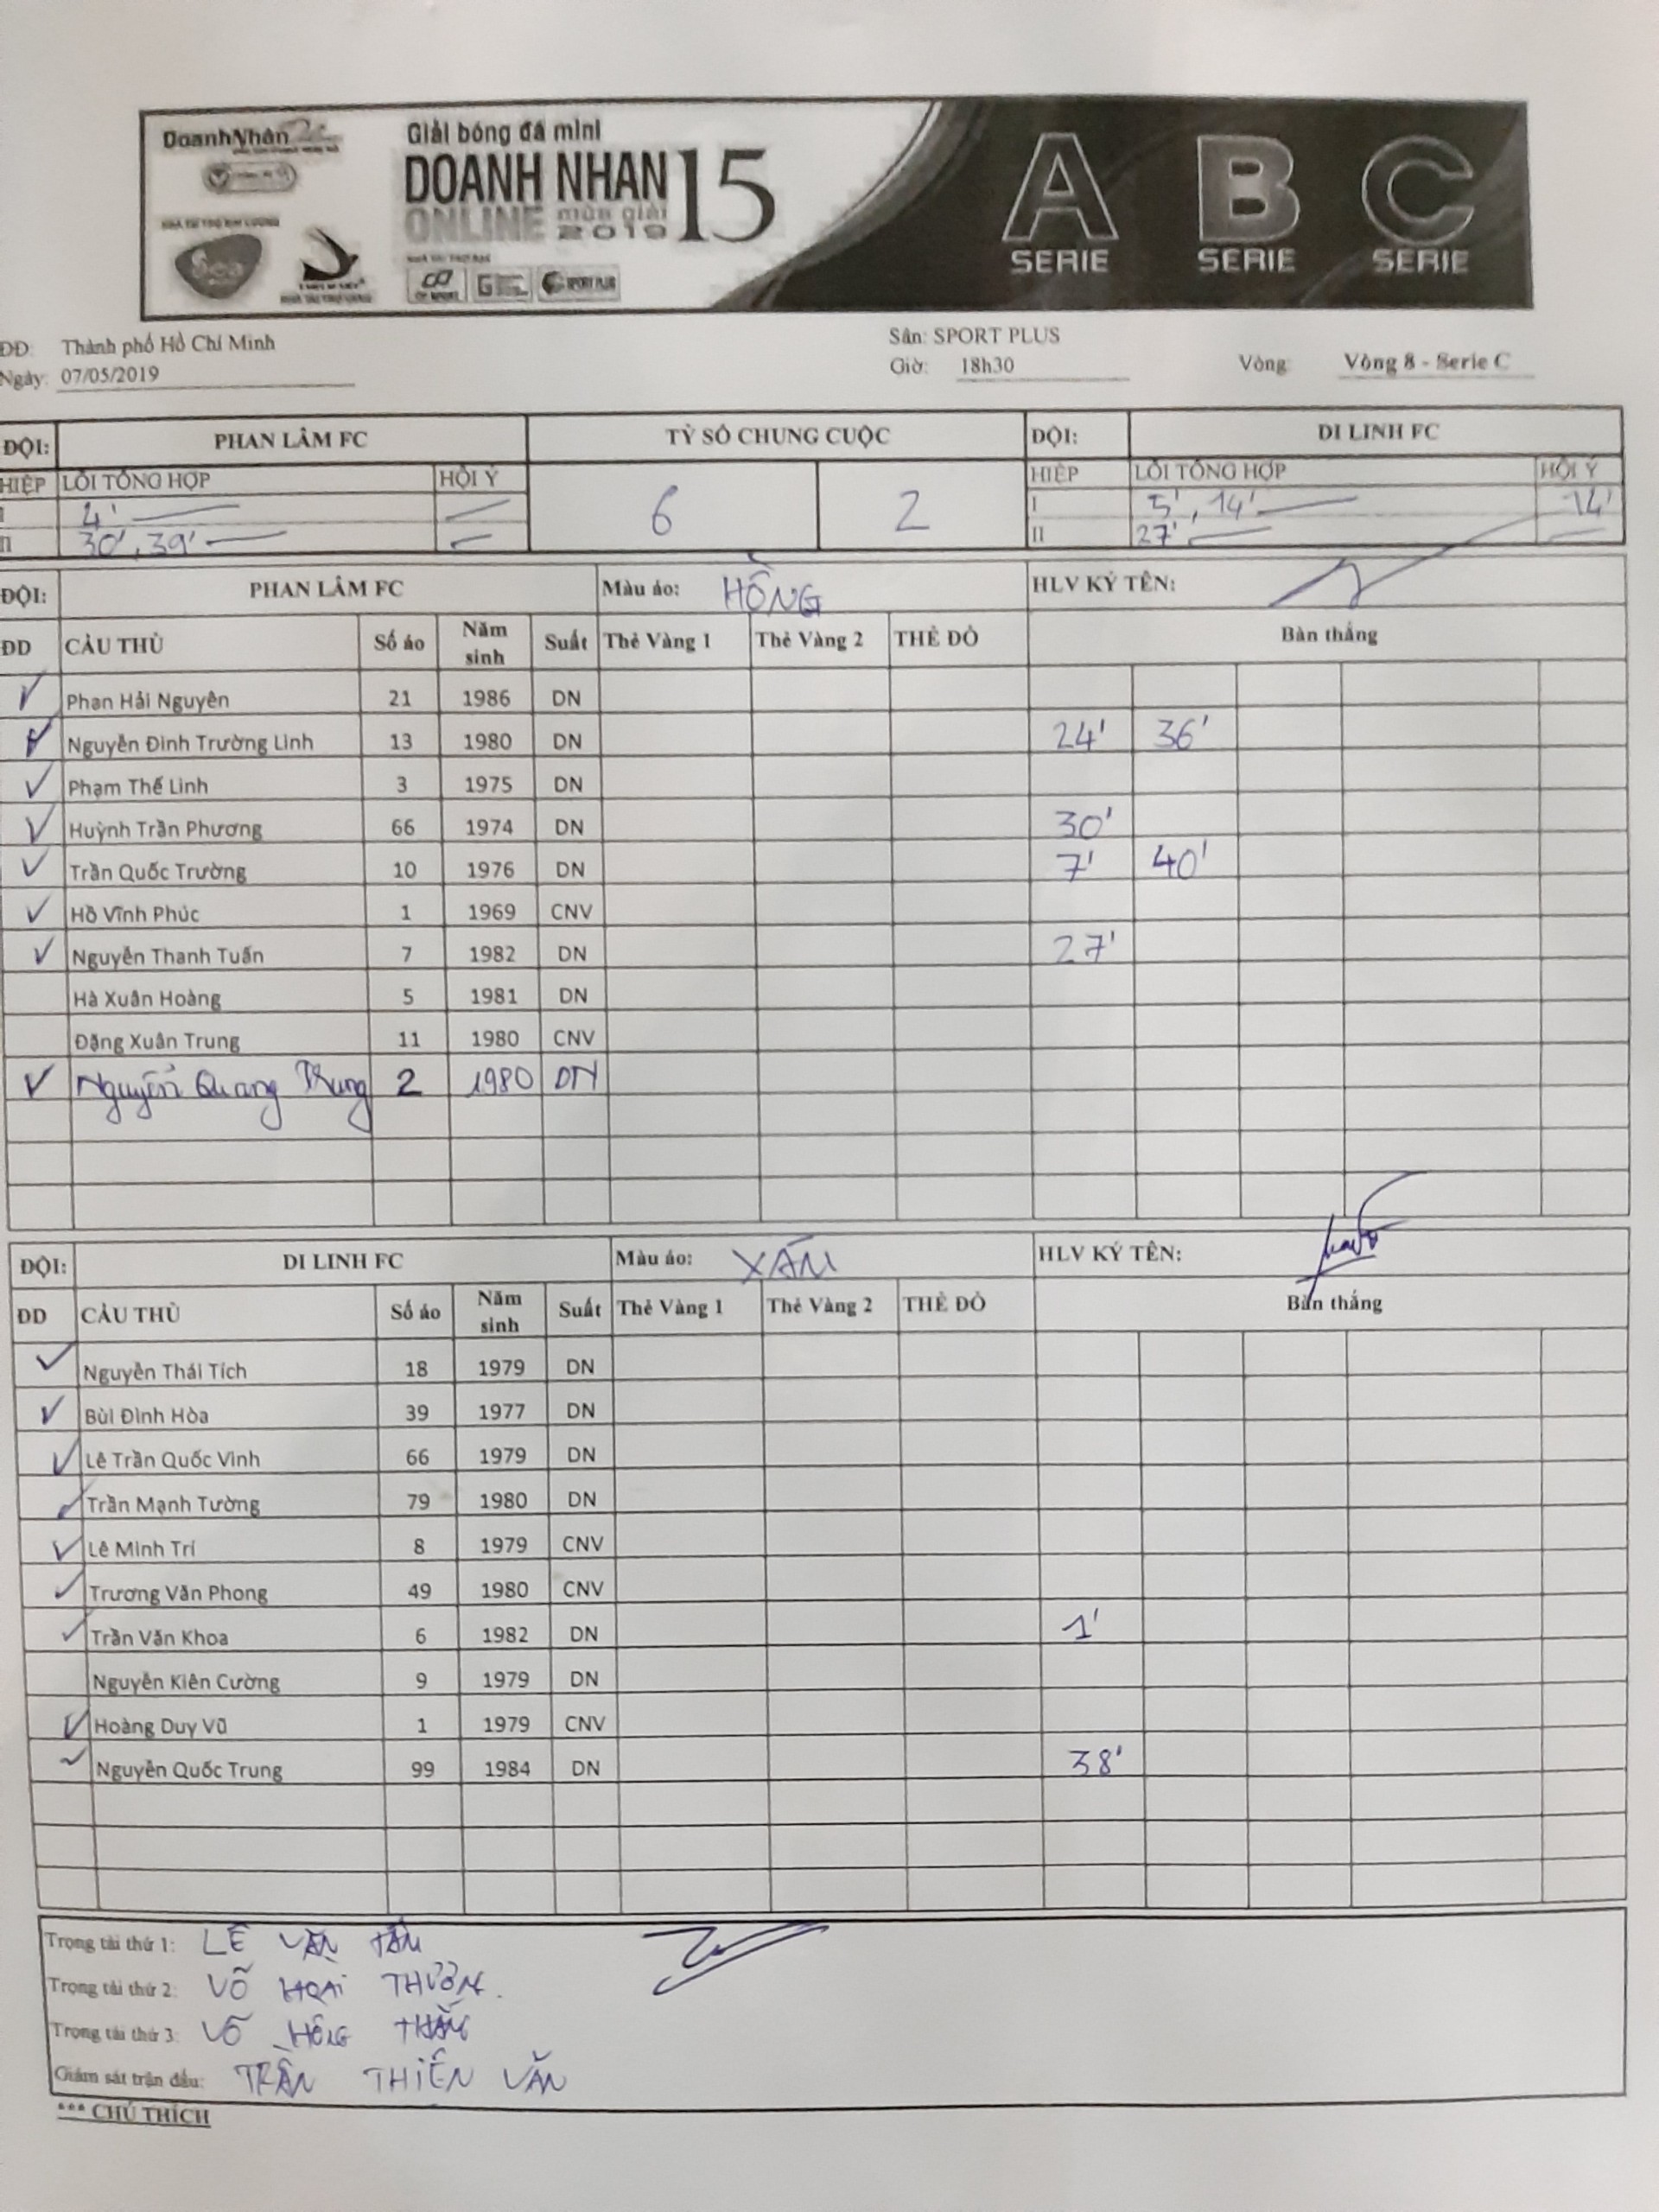 DoanhNhân
Giải bóng đá mini
DOANH NHAN 15
ONLINE mùa giải 2019
A B C
SERIE SERIE SERIE
Sea
SPORT PLUS
ĐĐ: Thành phố Hồ Chí Minh Sân: SPORT PLUS
Ngày: 07/05/2019 Giờ: 18h30 Vòng: Vòng 8 - Serie C
ĐỘI: PHAN LÂM FC TỶ SỐ CHUNG CUỘC ĐỘI: DI LINH FC
HIỆP LỖI TỔNG HỢP HỘI Ý 6 2 HIỆP LỖI TỔNG HỢP HỘI Ý
I 4' I 5', 14' 14'
II 30', 39' II 27'
ĐỘI: PHAN LÂM FC Màu áo: HỒNG HLV KÝ TÊN:
ĐD CẦU THỦ Số áo Năm sinh Suất Thẻ Vàng 1 Thẻ Vàng 2 THẺ ĐỎ Bàn thắng
Phan Hải Nguyên 21 1986 DN
Nguyễn Đình Trường Linh 13 1980 DN 24' 36'
Phạm Thế Linh 3 1975 DN
Huỳnh Trần Phương 66 1974 DN 30'
Trần Quốc Trường 10 1976 DN 7' 40'
Hồ Vĩnh Phúc 1 1969 CNV
Nguyễn Thanh Tuấn 7 1982 DN 27'
Hà Xuân Hoàng 5 1981 DN
Đặng Xuân Trung 11 1980 CNV
Nguyễn Quang Trung 2 1980 DN
ĐỘI: DI LINH FC Màu áo: XÁM HLV KÝ TÊN:
ĐD CẦU THỦ Số áo Năm sinh Suất Thẻ Vàng 1 Thẻ Vàng 2 THẺ ĐỎ Bàn thắng
Nguyễn Thái Tích 18 1979 DN
Bùi Đình Hòa 39 1977 DN
Lê Trần Quốc Vinh 66 1979 DN
Trần Mạnh Tường 79 1980 DN
Lê Minh Trí 8 1979 CNV
Trương Văn Phong 49 1980 CNV
Trần Văn Khoa 6 1982 DN 1'
Nguyễn Kiên Cường 9 1979 DN
Hoàng Duy Vũ 1 1979 CNV
Nguyễn Quốc Trung 99 1984 DN 38'
Trọng tài thứ 1: LÊ VĂN TẤN
Trọng tài thứ 2: VÕ HOÀI THƯƠNG.
Trọng tài thứ 3: VÕ HỒNG THẮNG
Giám sát trận đấu: TRẦN THIÊN VĂN
*** CHÚ THÍCH